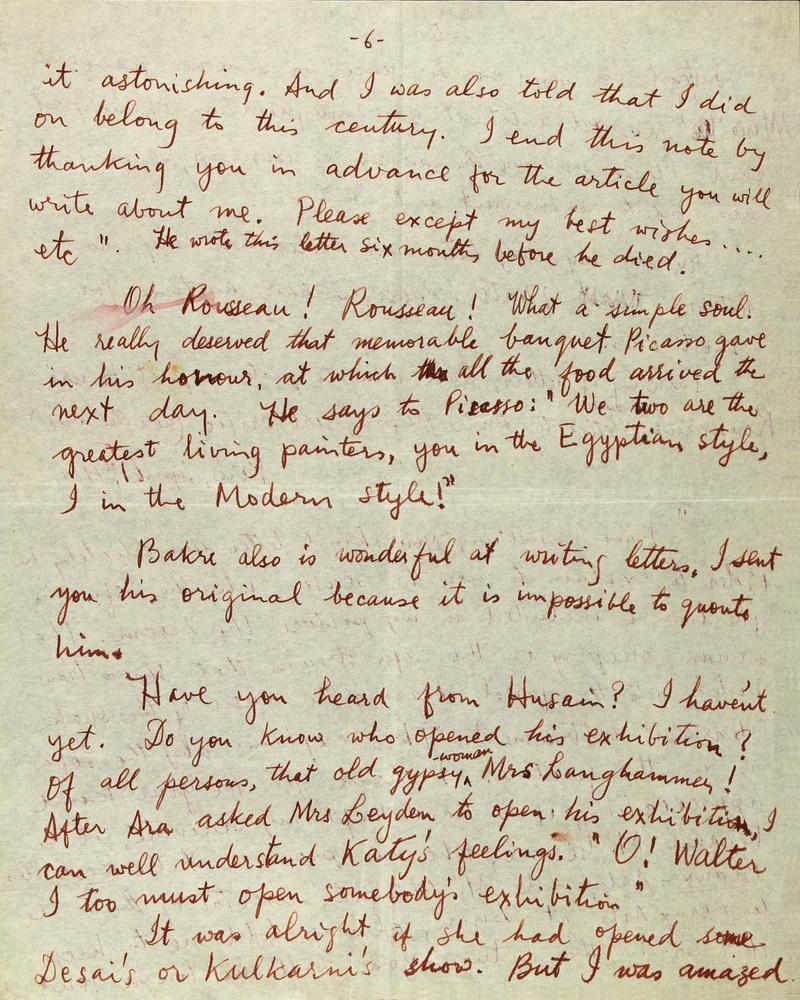 -6-
it astonishing. And I was also told that I did
on belong to this century. I end this note by
thanking you in advance for the article you will
write about me. Please except my best wishes....
etc ". He wrote this letter six months before he died.
Oh Rousseau! Rousseau! What a simple soul.
He really deserved that memorable banquet Picasso gave
in his honour, at which all the food arrived the
next day. He says to Picasso: " We two are the
greatest living painters, you in the Egyptian style,
I in the Modern style!"
Bakre also is wonderful at writing letters. I sent
you his original because it is impossible to quoute
him.
Have you heard from Husain? I haven't
yet. Do you know who opened his exhibition?
Of all persons, that old gypsy woman, Mrs Langhammer!
After Ara asked Mrs Leyden to open his exhibition, I
can well understand Katy's feelings. " O! Walter
I too must open somebody's exhibition "
It was alright if she had opened some
Desai's or Kulkarni's show. But I was amazed